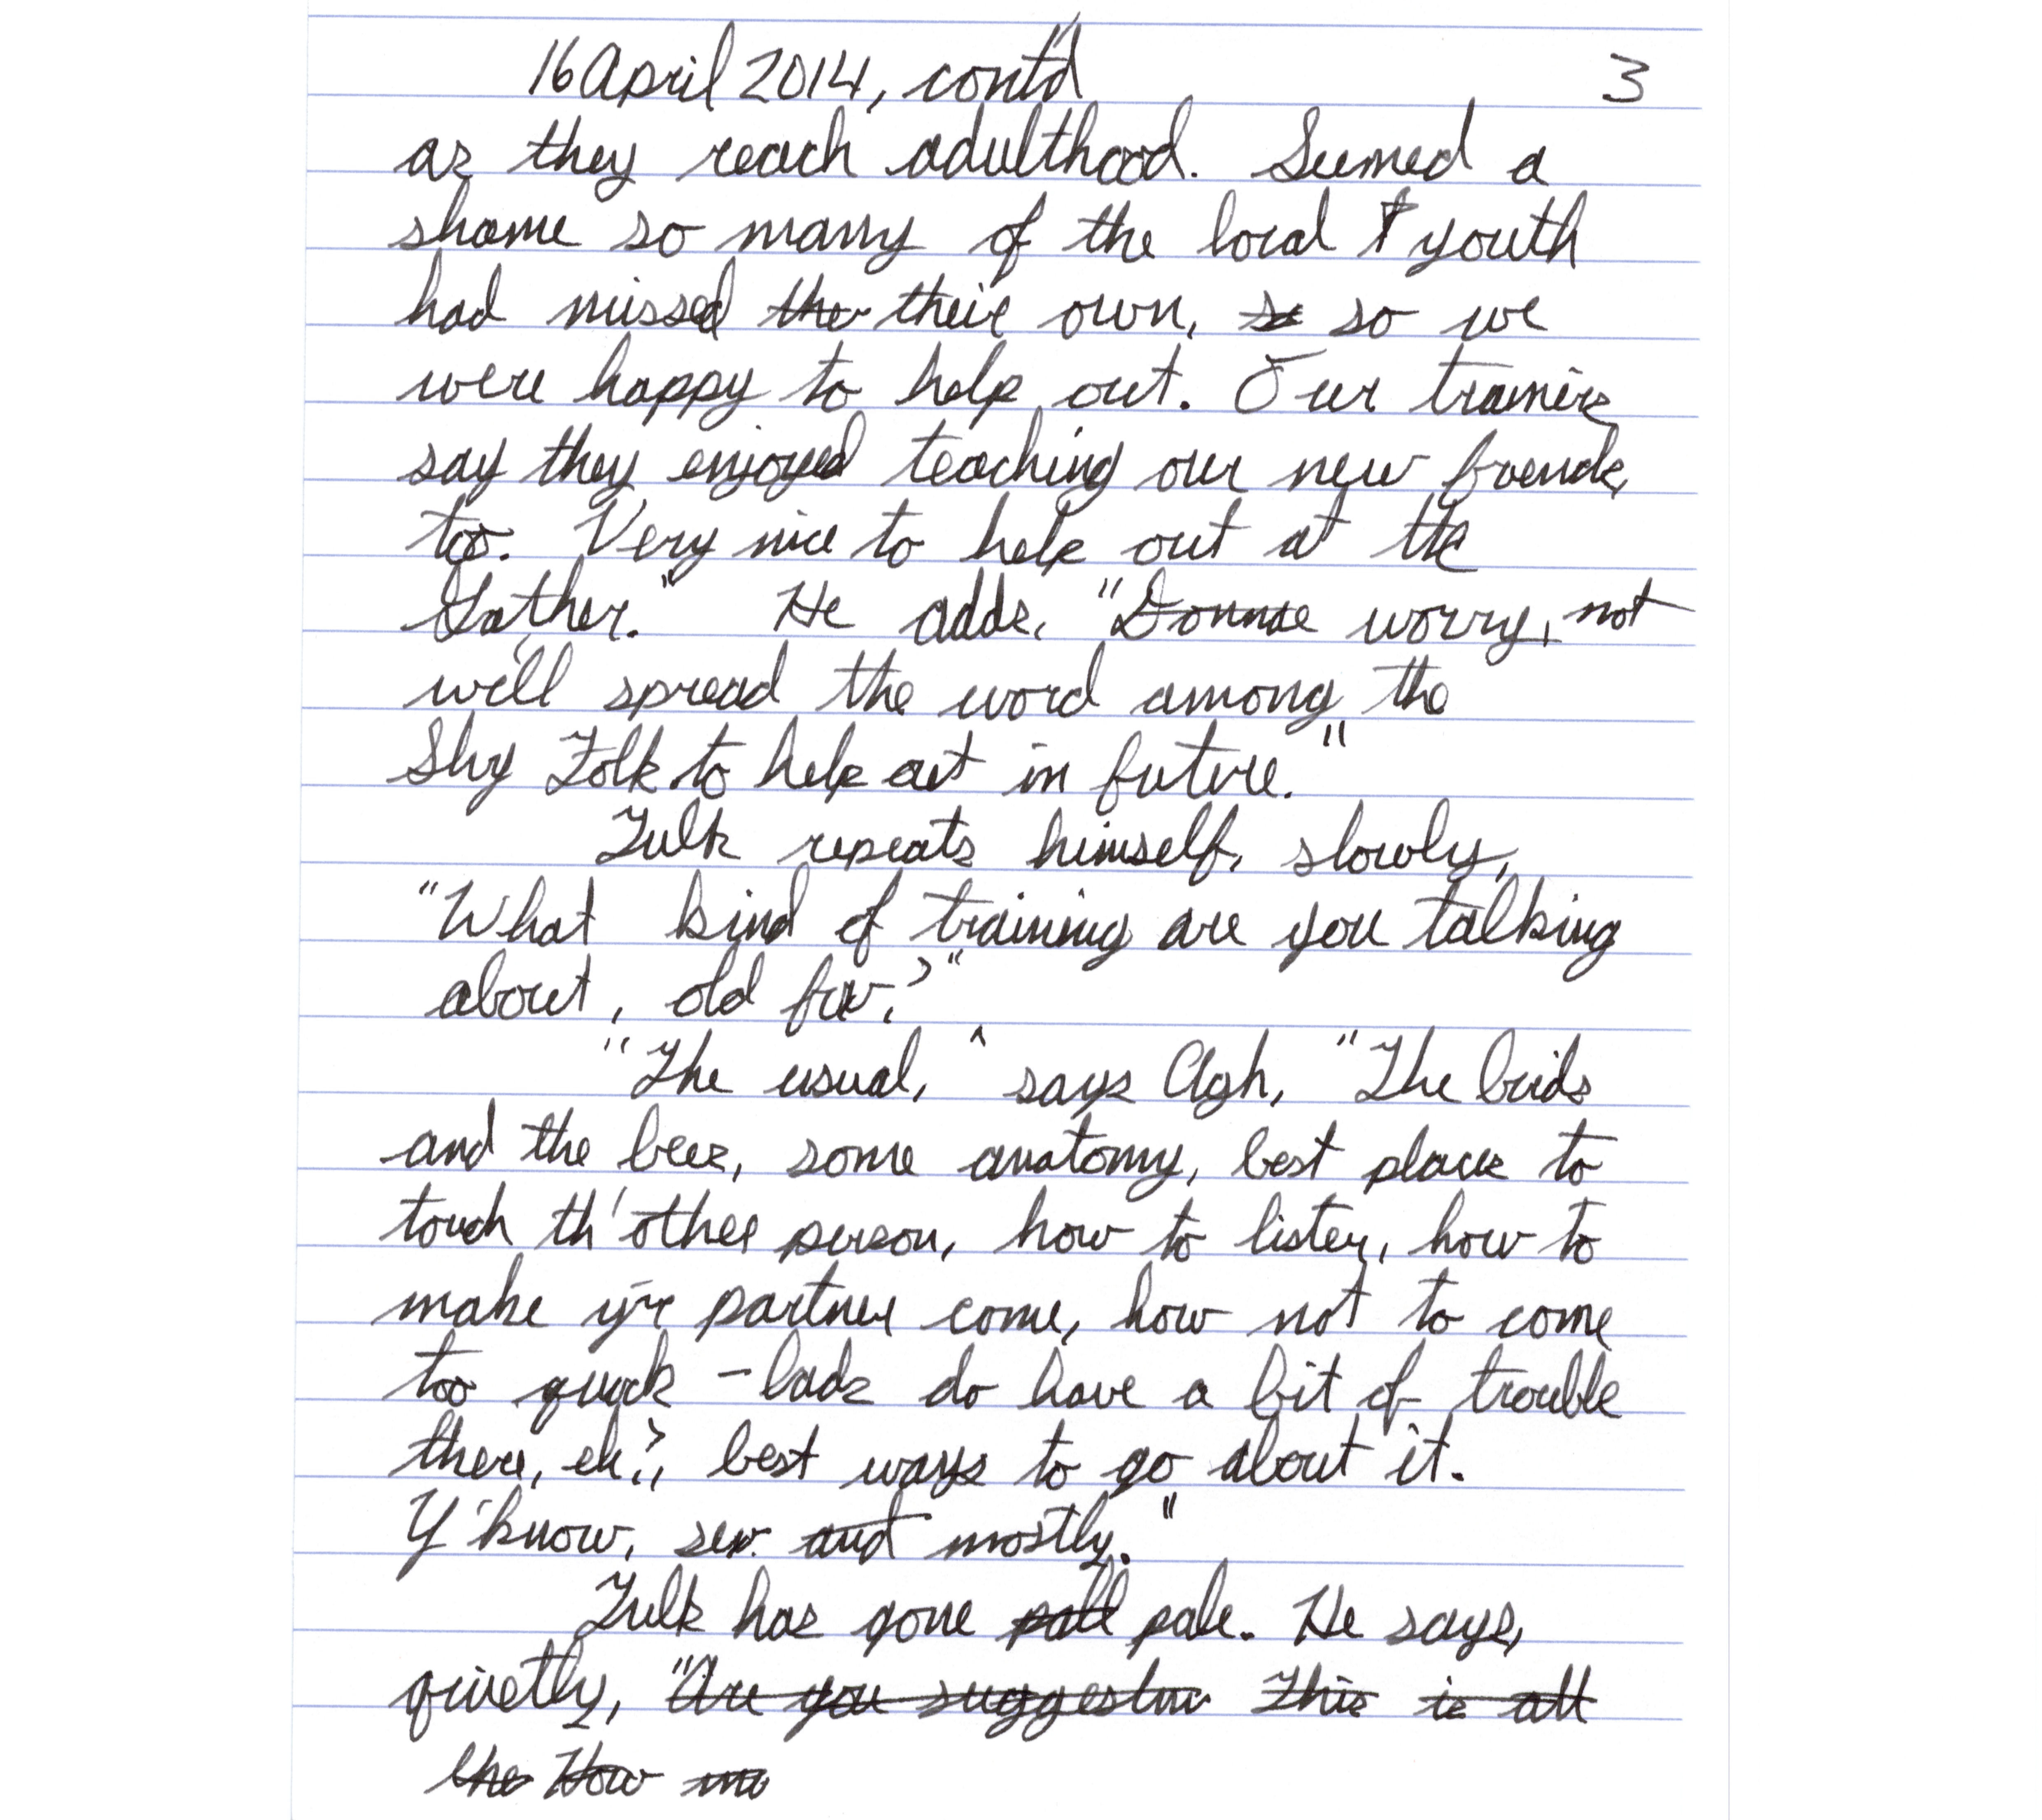 16 April 2014, cont'd 3
as they reach adulthood. Seemed a
shame so many of the local t youth
had missed the their own, se so we
were happy to help out. Our trainers
say they enjoyed teaching our new friends,
too. Very nice to help out at the
Gather." He adds, "Donnae worry, not
we'll spread the word among the
Shy Folk to help out in future."
Tulk repeats himself, slowly,
"What kind of training are you talking
about, old fox?"
"The usual," says Agh, "The birds
and the bees, some anatomy, best places to
touch th'other person, how to listen, how to
make yr partner come, how not to come
too quick - lads do have a bit of trouble
there, eh?, best ways to go about it.
Y'know, sex and mostly."
Tulk has gone pall pale. He says,
quietly, "Are you suggestin This is all
the How mo